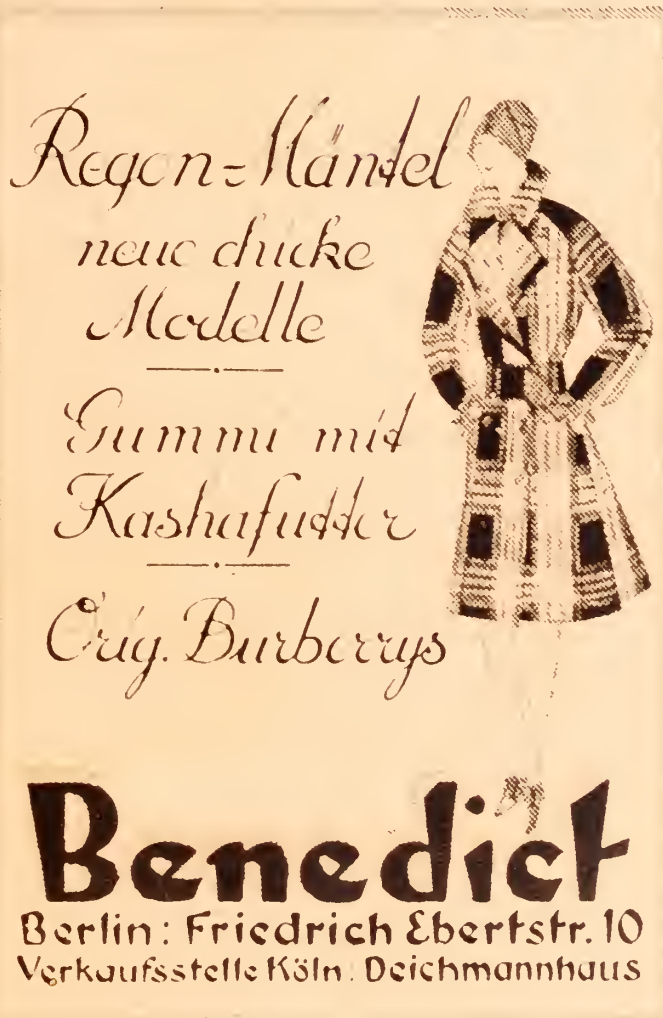 Regen=Mäntel
neue chicke
Modelle
Gummi mit
Kashafutter
Orig. Burberrys
Benedict
Berlin: Friedrich Ebertstr. 10
Verkaufsstelle Köln: Deichmannhaus